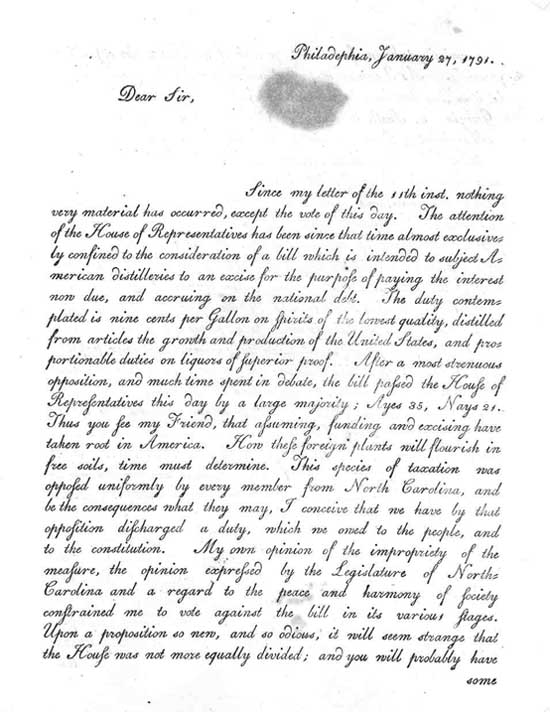 Philadephia, January 27, 1791.
Dear Sir,
Since my letter of the 11th inst. nothing
very material has occurred, except the vote of this day. The attention
of the House of Representatives has been since that time almost exclusive-
ly confined to the consideration of a bill which is intended to subject A-
merican distilleries to an excise for the purpoſe of paying the interest
now due, and accruing on the national debt. The duty contem-
plated is nine cents per Gallon on ſpirits of the lowest quality, distilled
from articles the growth and production of the United States, and pro-
portionable duties on liquors of ſuperior proof. After a most strenuous
opposition, and much time spent in debate, the bill paſsed the House of
Repreſentatives this day by a large majority; Ayes 35, Nays 21.
Thus you ſee my Friend, that aſsuming, funding and excising have
taken root in America. How theſe foreign plants will flourish in
free soils, time must determine. This species of taxation was
oppoſed uniformly by every member from North Carolina, and
be the consequences what they may, I conceive that we have by that
oppoſition diſcharged a duty, which we owed to the people, and
to the constitution. My own opinion of the impropriety of the
meaſure, the opinion expreſsed by the Legislature of North-
Carolina and a regard to the peace and harmony of ſociety
conſtrained me to vote against the bill in its various ſtages.
Upon a proposition so new, and so odious, it will seem strange that
the House was not more equally divided; and you will probably have
some